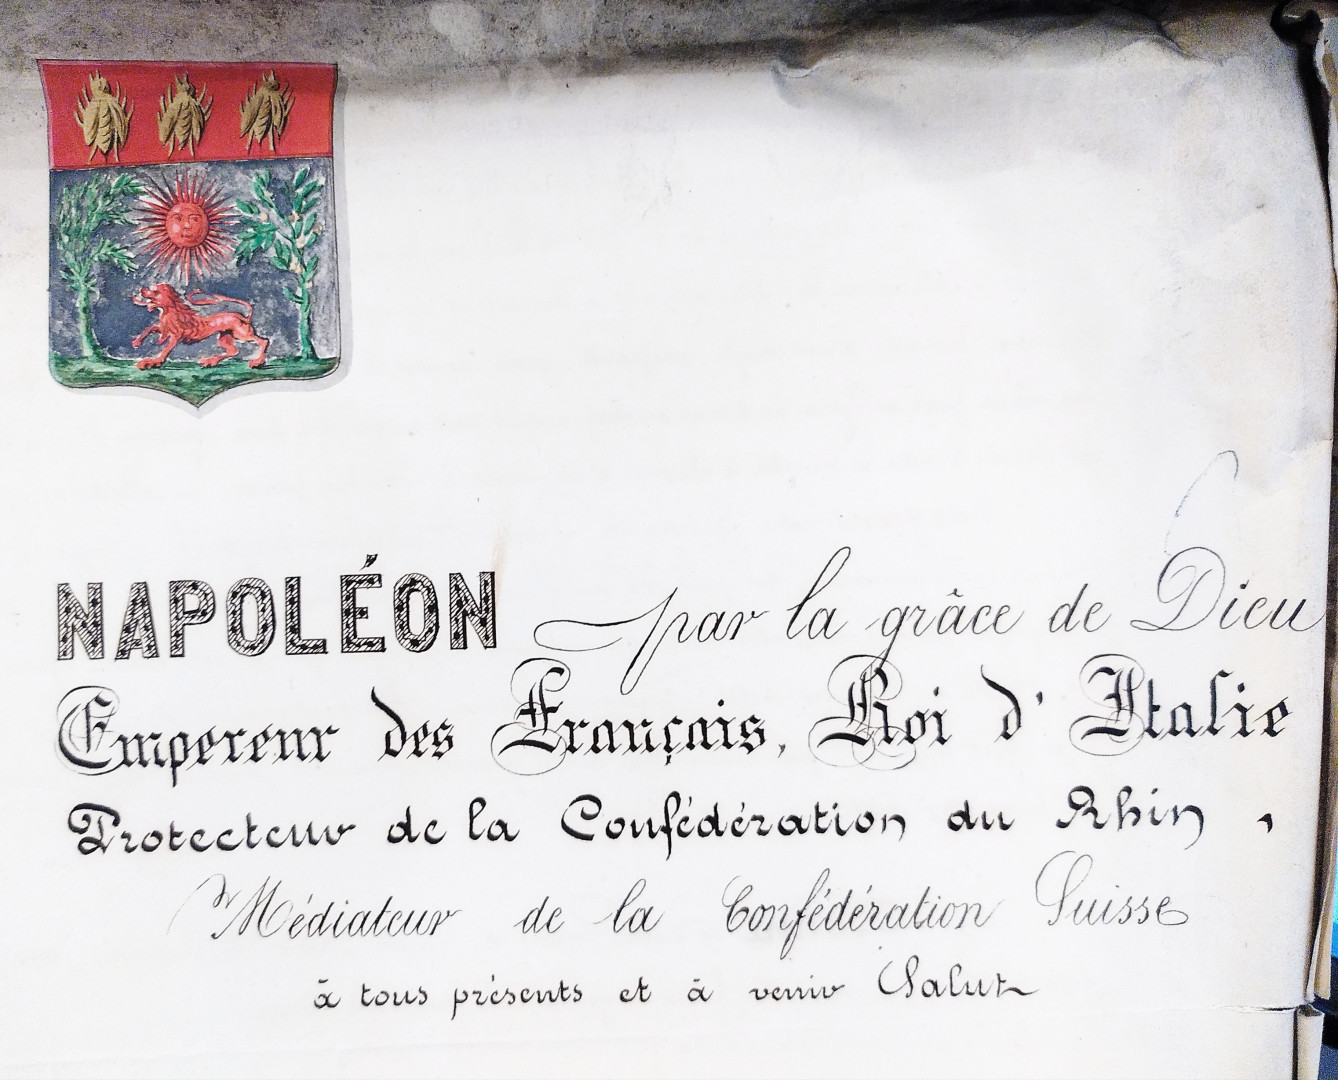 NAPOLÉON par la grâce de Dieu
Empereur des Français, Roi d'Italie
Protecteur de la Confédération du Rhin,
Médiateur de la Confédération Suisse
à tous présents et à venir Salut